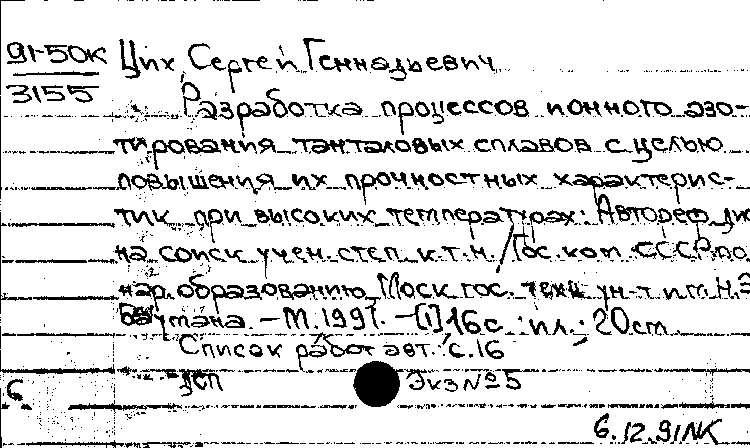 91-50К Цих, Сергей Геннадьевич
3155
Разработка процессов ионного азо-
тирования танталовых сплавов с целью
повышения их прочностных характерис-
тик при высоких температурах: Автореф. ди
на соиск. учен. степ. к.т.н. / Гос. ком. СССР по
нар. образованию, Моск. гос. техн. ун-т им. Н.Э.
Баумана. - М. 1991. - [1] 16 с. : ил. ; 20 см.
Список работ авт.: с. 16
Экз № 5
С
6.12.91 NK